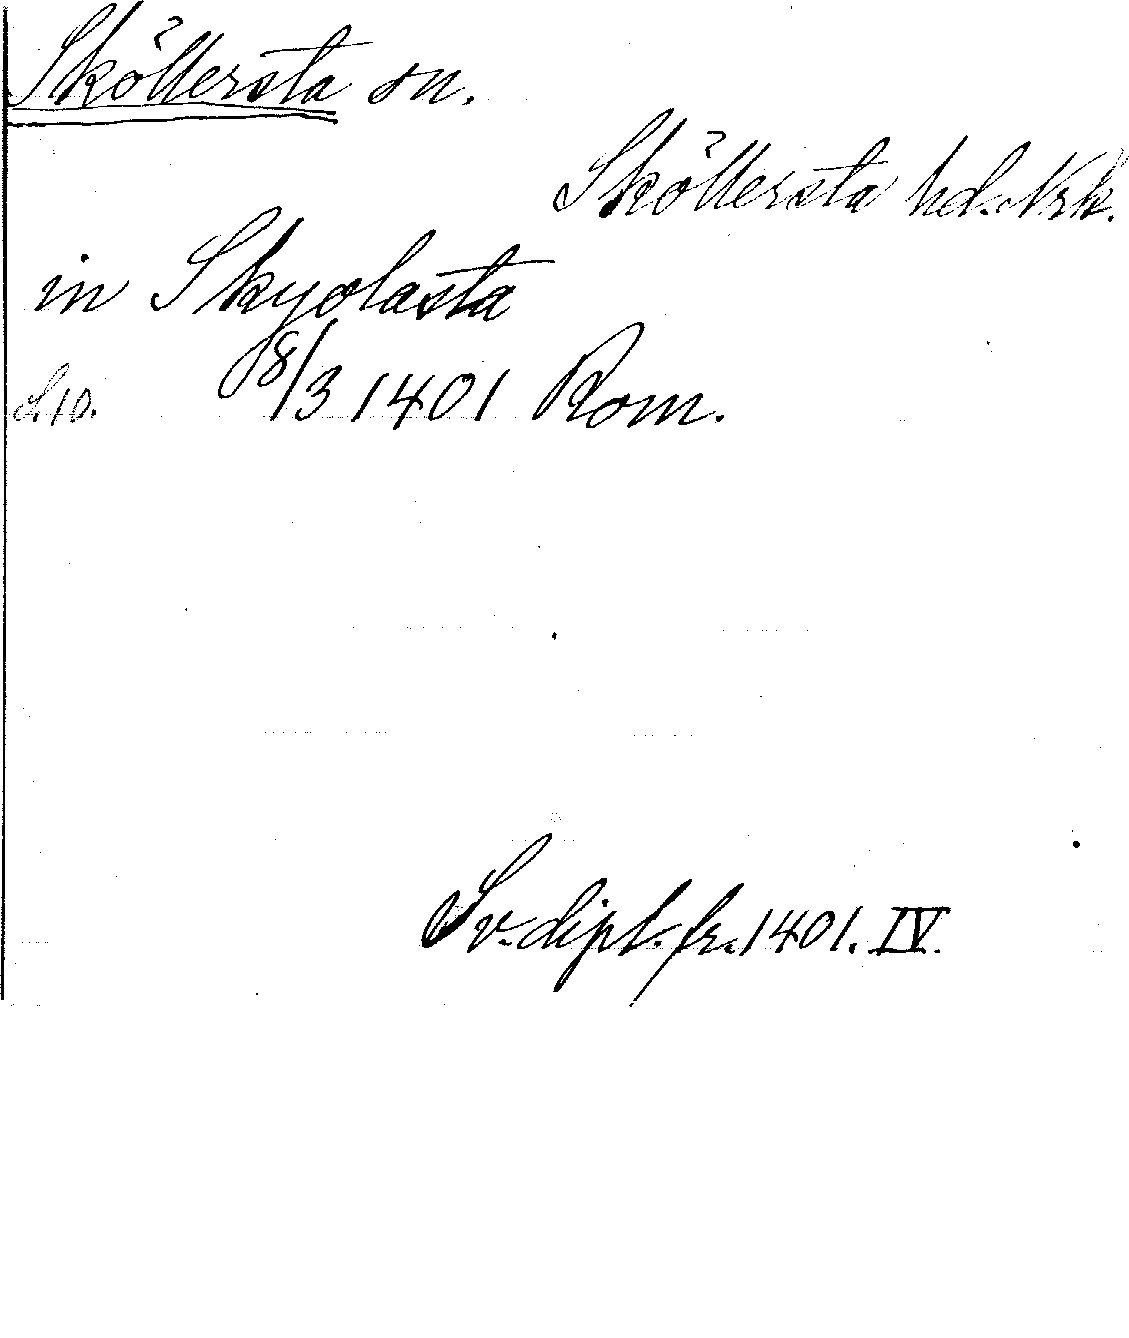 Sköllersta sn.
Sköllersta hd. Nrk.
in Skyolasta
S. 10. 18/3 1401 Rom.
Sv. dipl. fr. 1401. IV.